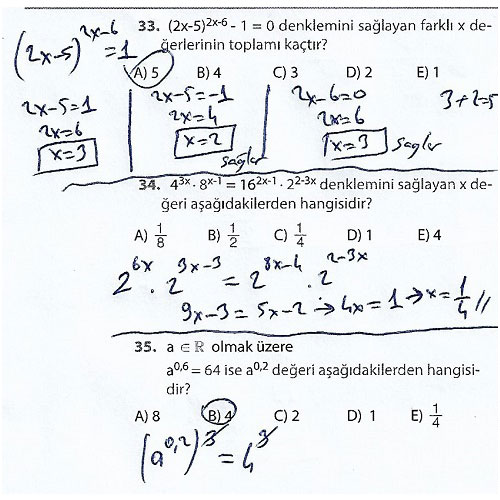 (2x-5)^2x-6 = 1
33. (2x-5)^2x-6 - 1 = 0 denklemini sağlayan farklı x de-
ğerlerinin toplamı kaçtır?
A) 5 B) 4 C) 3 D) 2 E) 1
2x-5=1
2x=6
x=3
2x-5=-1
2x=4
x=2
sağlar
2x-6=0
2x=6
x=3 sağlar
3+2=5
34. 4^3x · 8^x-1 = 16^2x-1 · 2^2-3x denklemini sağlayan x de-
ğeri aşağıdakilerden hangisidir?
A) 1/8 B) 1/2 C) 1/4 D) 1 E) 4
2^6x · 2^3x-3 = 2^8x-4 · 2^2-3x
9x-3 = 5x-2 → 4x = 1 → x = 1/4 //
35. a ∈ ℝ olmak üzere
a^0,6 = 64 ise a^0,2 değeri aşağıdakilerden hangisi-
dir?
A) 8 B) 4 C) 2 D) 1 E) 1/4
(a^0,2)^3 = 4^3